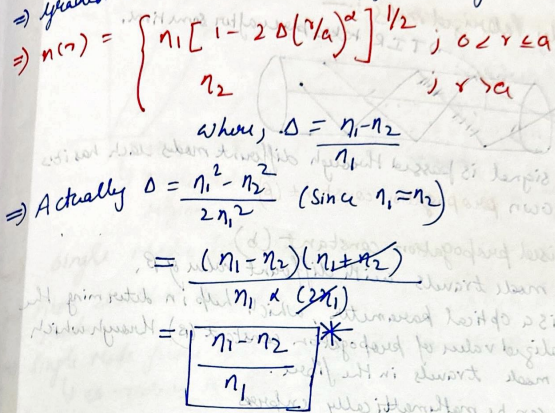 ⇒ n(r) = { n₁ [ 1 - 2 Δ (r/a)^α ]^1/2 ; 0 < r ≤ a
n₂ ; r > a
where, Δ = (n₁ - n₂) / n₁
⇒ Actually Δ = (n₁² - n₂²) / 2n₁² (since n₁ ≈ n₂)
= (n₁ - n₂)(n₁ + n₂) / n₁ × (2n₁)
= (n₁ - n₂) / n₁ *